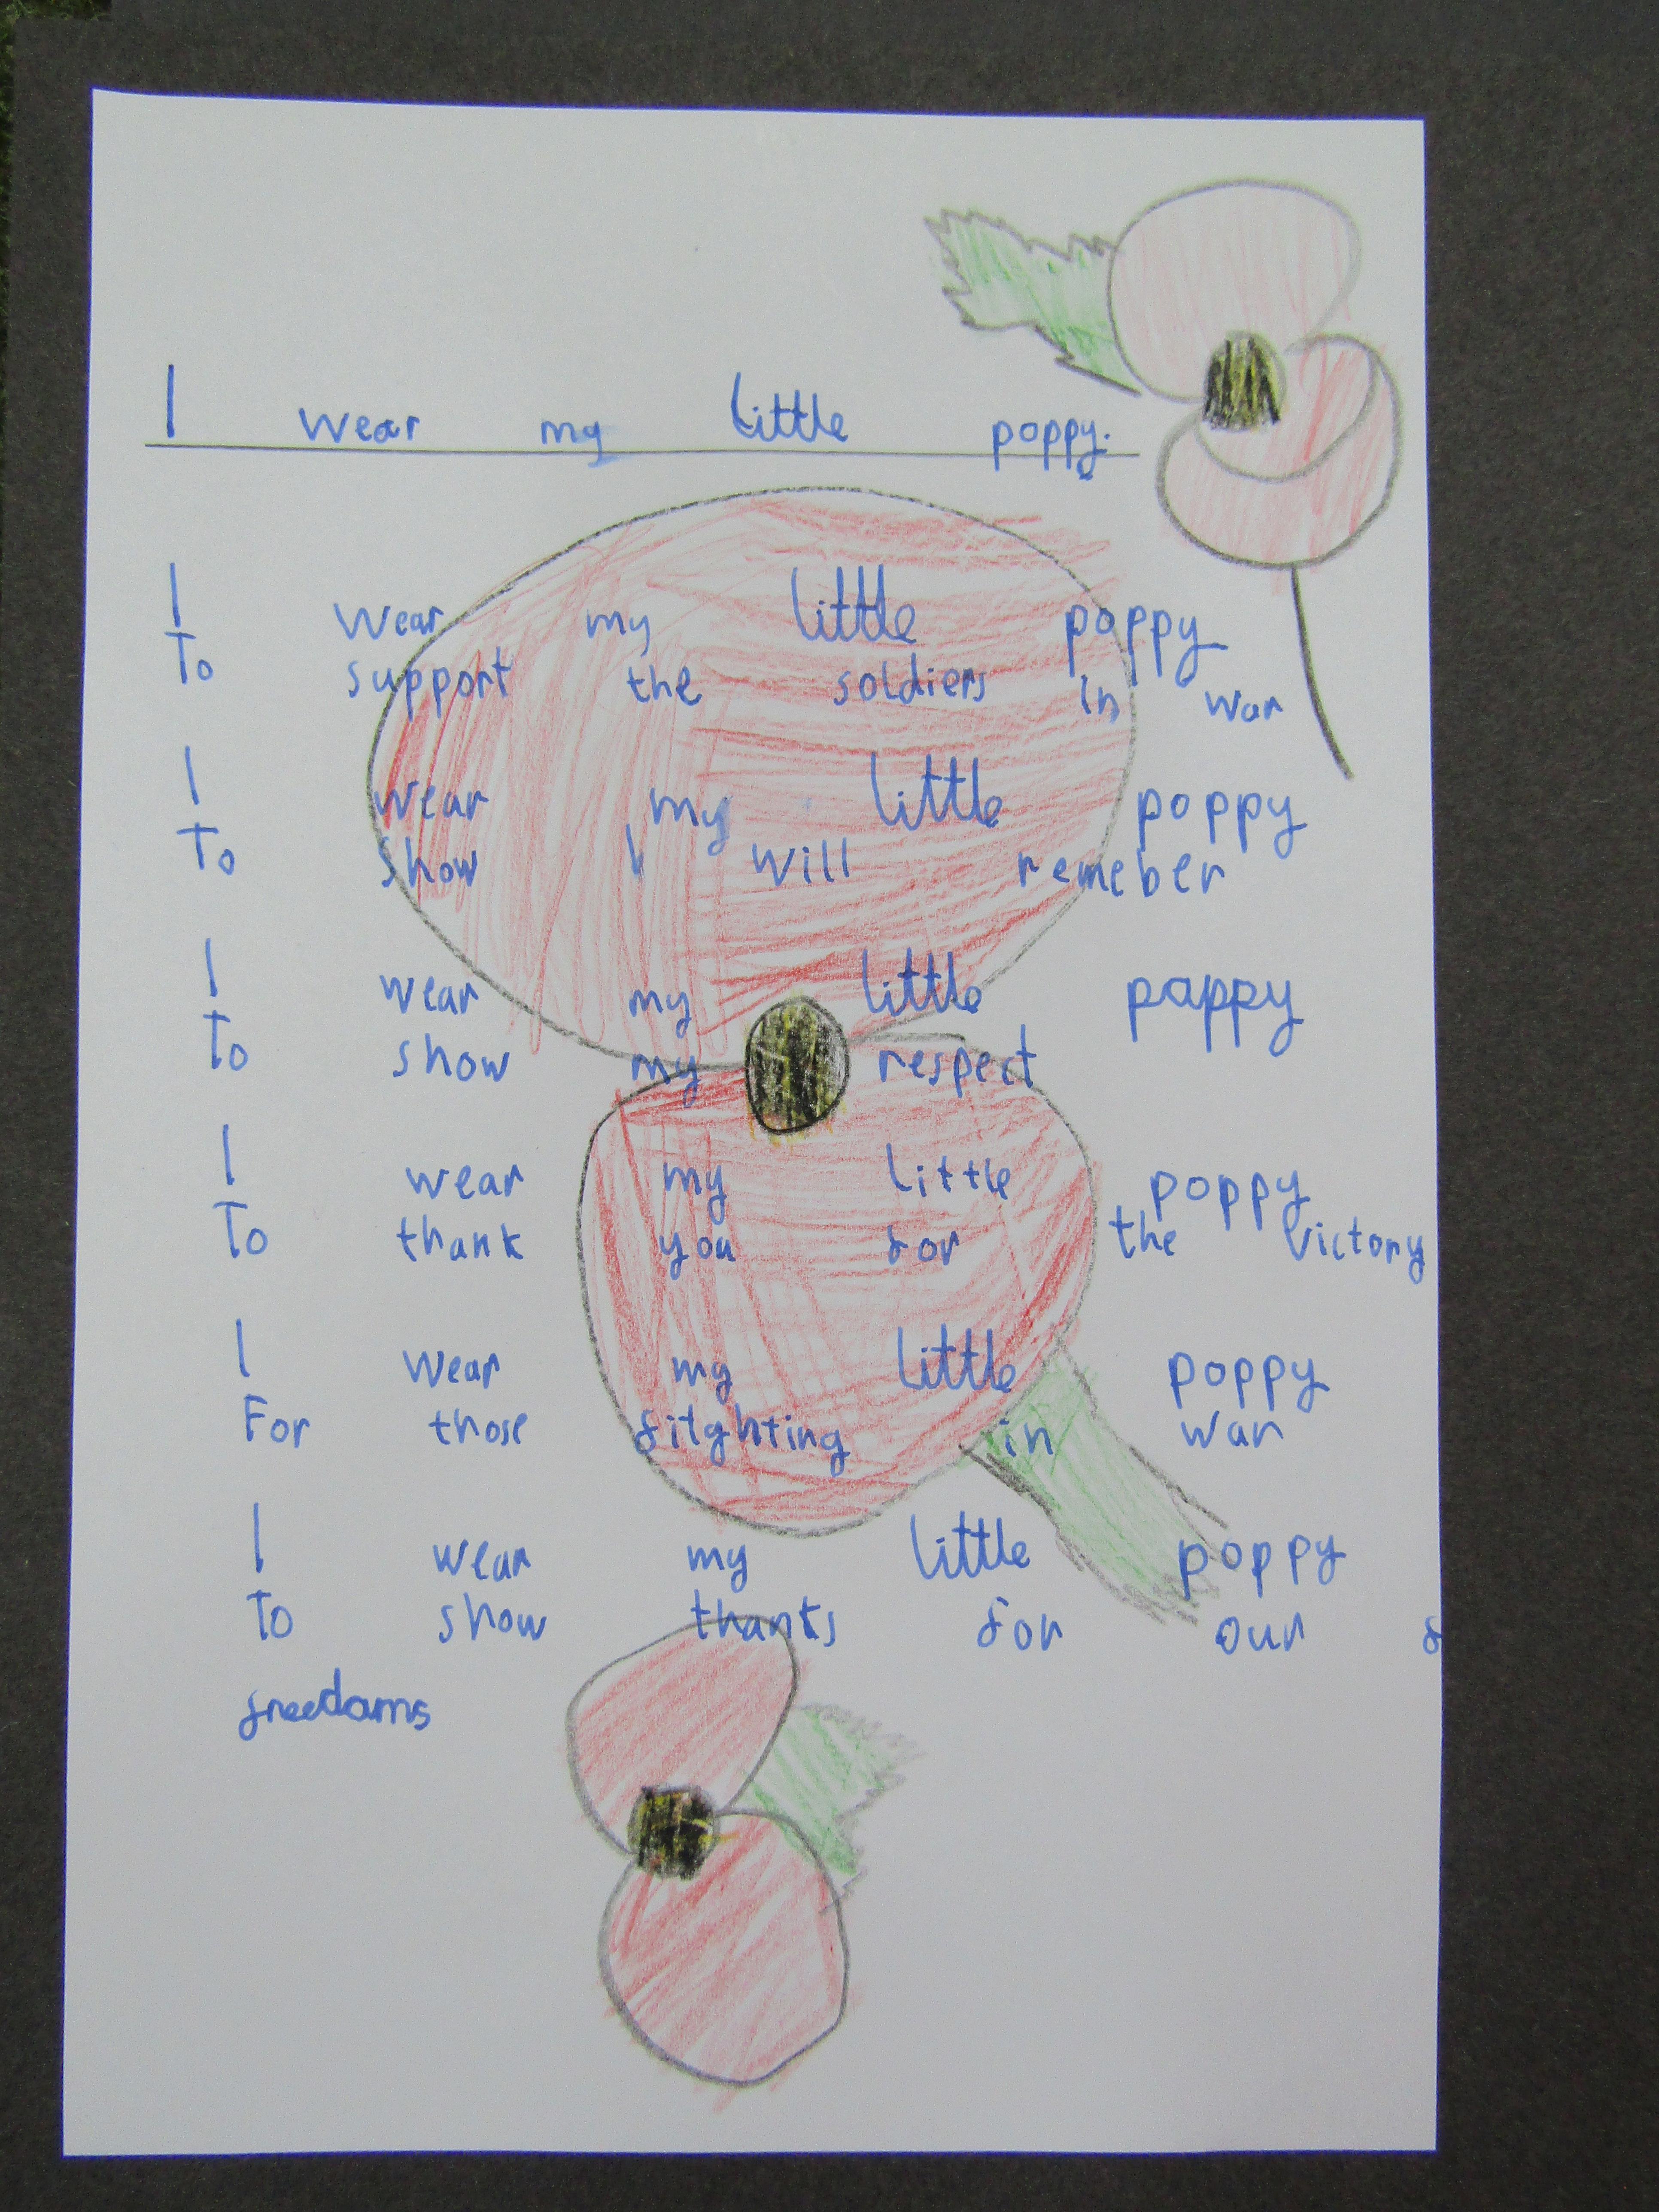 I wear my little poppy.
I wear my little poppy
To support the soldiers in war
I wear my little poppy
To show I will remeber
I wear my little pappy
To show my respect
I wear my little poppy
To thank you for the victory
I wear my little poppy
For those filghting in war
I wear my little poppy
To show thanks for our f
freedams